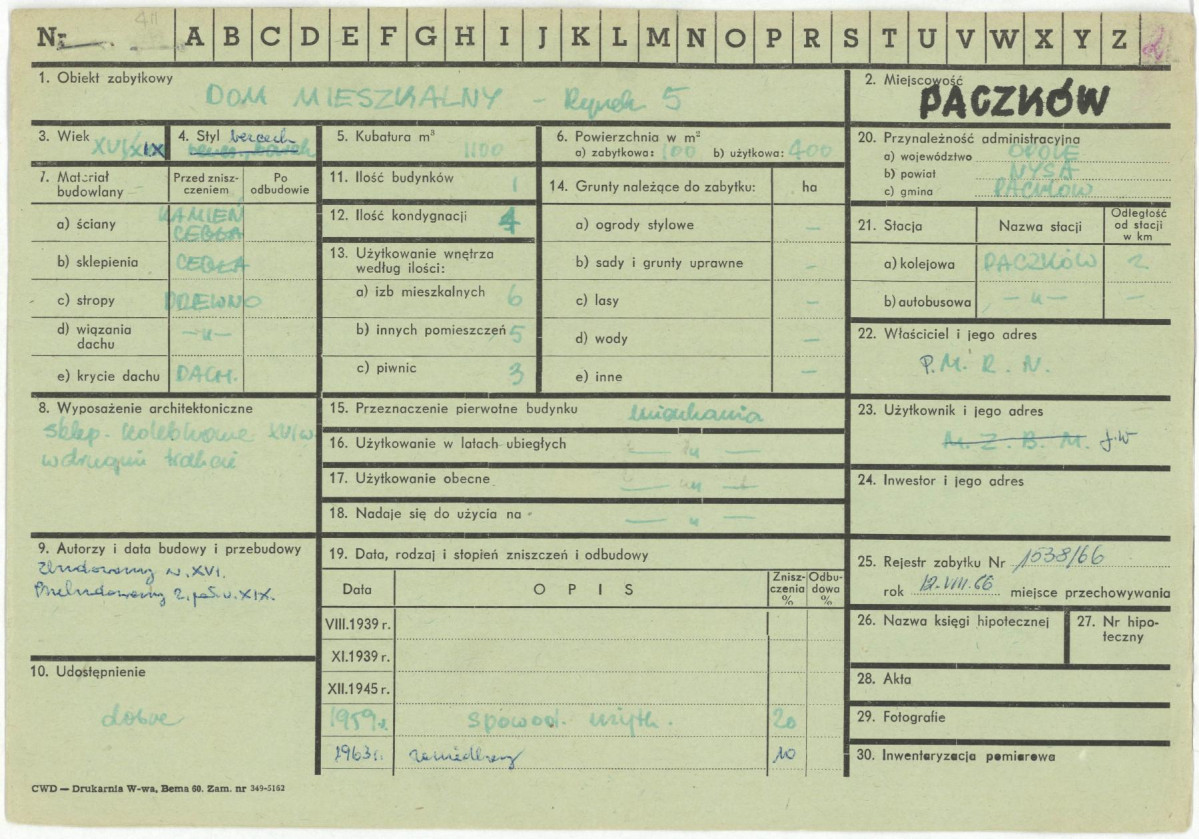 Nr 411 A B C D E F G H I J K L M N O P R S T U V W X Y Z 2
1. Obiekt zabytkowy
DOM MIESZKALNY – Rynek 5
2. Miejscowość
PACZKÓW
3. Wiek
XVI/XIX
4. Styl bezcech.
5. Kubatura m³
1100
6. Powierzchnia w m²
a) zabytkowa: 100 b) użytkowa: 400
7. Materiał budowlany
Przed zniszczeniem
Po odbudowie
a) ściany KAMIEŃ CEGŁA
b) sklepienia CEGŁA
c) stropy DREWNO
d) wiązania dachu — " —
e) krycie dachu DACH.
8. Wyposażenie architektoniczne
sklep. kolebkowe XVI w.
w drugim trakcie
9. Autorzy i data budowy i przebudowy
Zbudowany w. XVI.
Przebudowany 2. poł. w. XIX.
10. Udostępnienie
dobre
11. Ilość budynków 1
12. Ilość kondygnacji 4
13. Użytkowanie wnętrza
według ilości:
a) izb mieszkalnych 6
b) innych pomieszczeń 5
c) piwnic 3
14. Grunty należące do zabytku: ha
a) ogrody stylowe —
b) sady i grunty uprawne —
c) lasy —
d) wody —
e) inne —
15. Przeznaczenie pierwotne budynku mieszkania
16. Użytkowanie w latach ubiegłych — " —
17. Użytkowanie obecne — " —
18. Nadaje się do użycia na — " —
19. Data, rodzaj i stopień zniszczeń i odbudowy
Data O P I S Zniszczenia % Odbudowa %
VIII.1939 r.
XI.1939 r.
XII.1945 r.
1959 r. spowod. użytk. 20
1963 r. zaniedbany 10
20. Przynależność administracyjna
a) województwo OPOLE
b) powiat NYSA
c) gmina PACZKÓW
21. Stacja Nazwa stacji Odległość od stacji w km
a) kolejowa PACZKÓW 2
b) autobusowa — " — —
22. Właściciel i jego adres
P. M. R. N.
23. Użytkownik i jego adres
M. Z. B. M. j.w
24. Inwestor i jego adres
25. Rejestr zabytku Nr 1538/66
rok 12.VIII.66 miejsce przechowywania
26. Nazwa księgi hipotecznej
27. Nr hipoteczny
28. Akta
29. Fotografie
30. Inwentaryzacja pomiarowa
CWD — Drukarnia W-wa, Bema 60. Zam. nr 349-5162